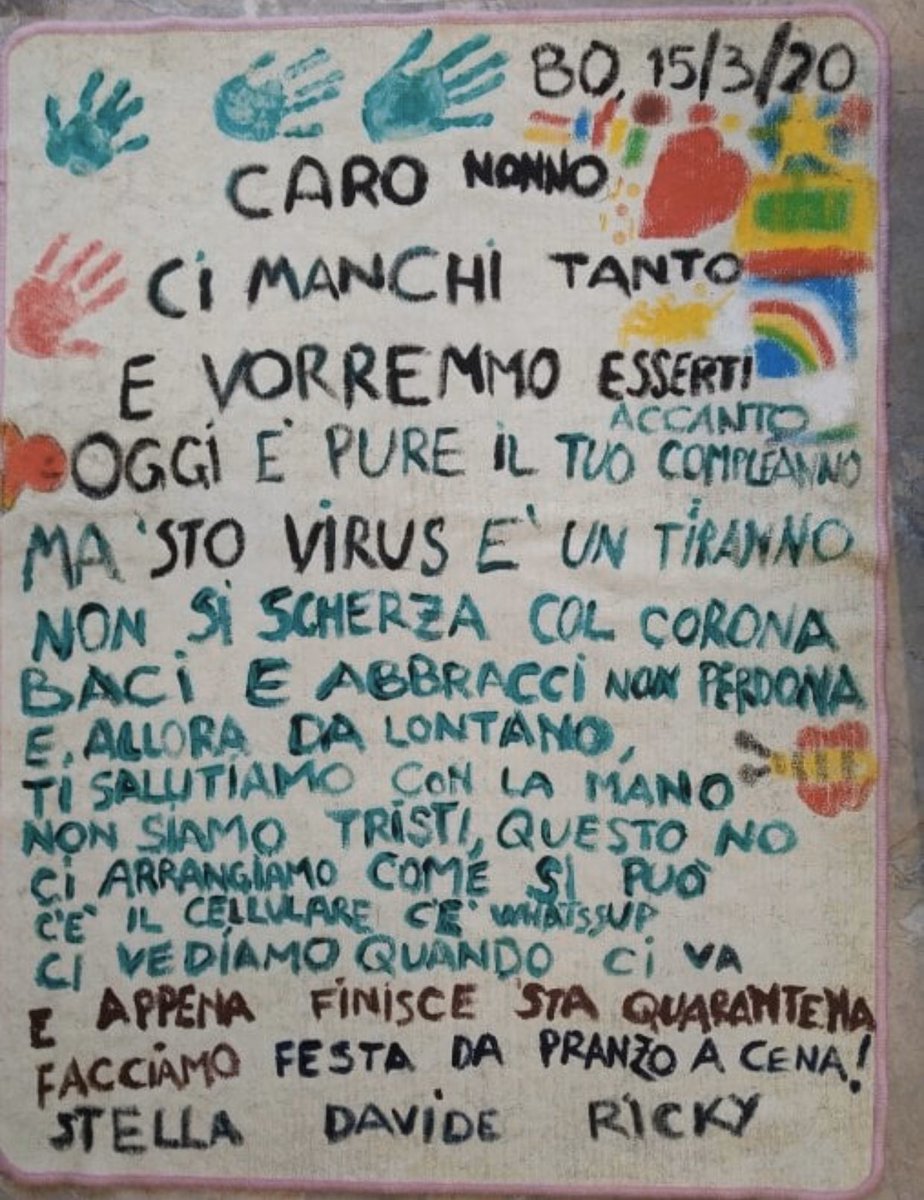 BO, 15/3/20
CARO NONNO
Ci MANCHi TANTO
E VORREMMO ESSERTI
ACCANTO
OGGi E' PURE iL TUO COMPLEANNO
MA 'STO ViRUS E' UN TiRANNO
NON Si SCHERZA COL CORONA
BACi E ABBRACCi NON PERDONA
E, ALLORA DA LONTANO,
Ti SALUTIAMO CON LA MANO
NON SiAMO TRiSTi, QUESTO NO
Ci ARRANGiAMO COME Si PUÒ
C'E' iL CELLULARE C'E' WHATSSUP
Ci VEDiAMO QUANDO Ci VA
E APPENA FiNiSCE 'STA QUARANTENA
FACCiAMO FESTA DA PRANZO A CENA!
STELLA DAViDE RiCKY